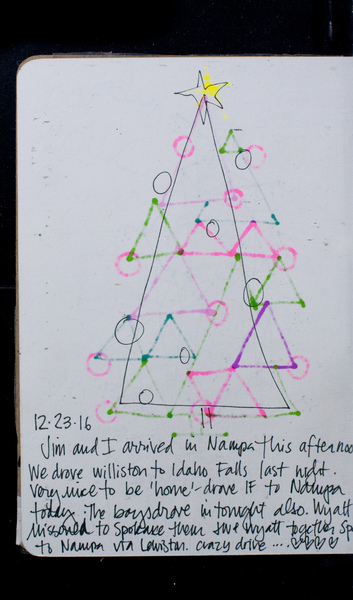 12.23.16
Jim and I arrived in Nampa this afternoo
We drove williston to Idaho Falls last night.
Very nice to be 'home' - drove IF to Nampa
today. The boys drove in tonight also. Wyatt
Missoula to Spokane then Wyatt together Sp
to Nampa via Lewiston. crazy drive ....